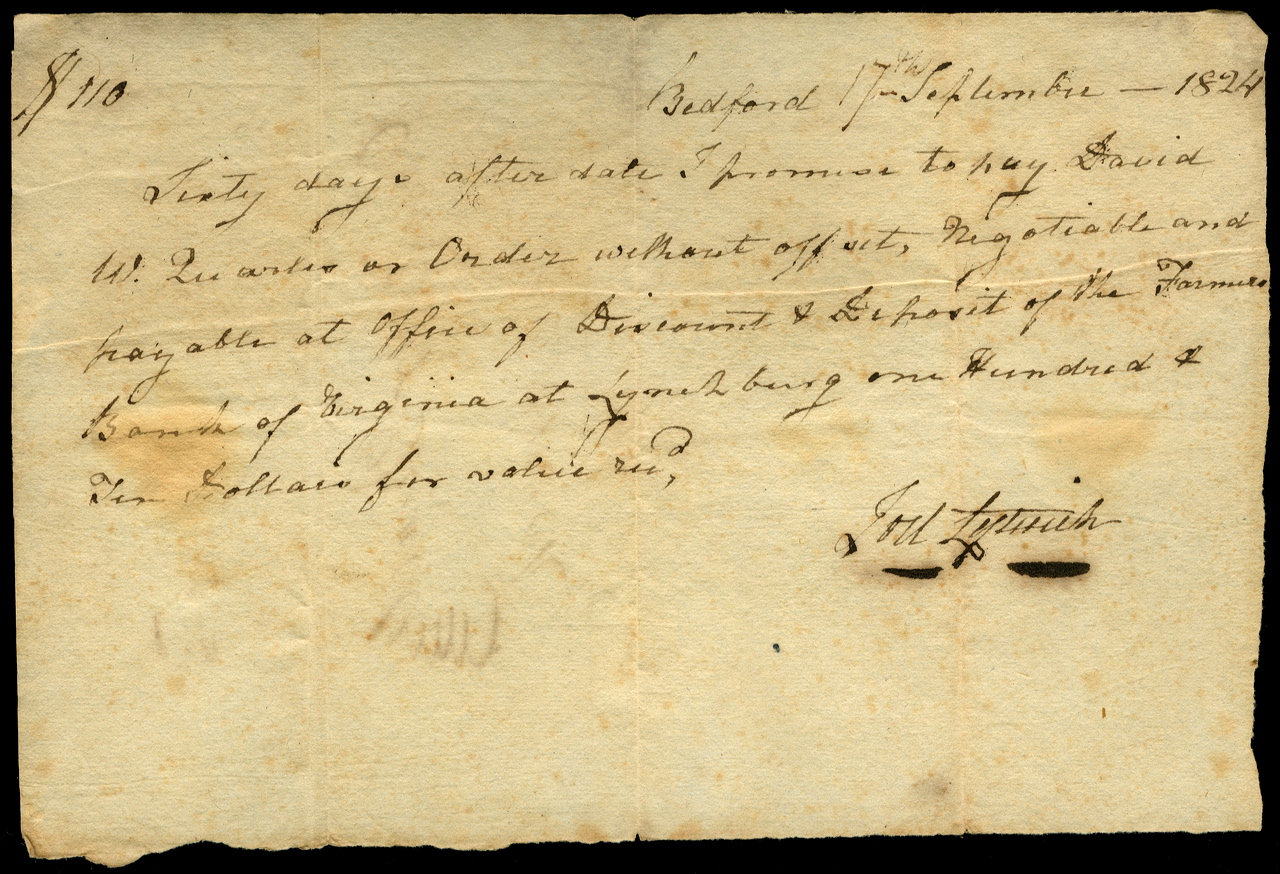 $110
Bedford 17th September — 1824
Sixty days after date I promise to pay David
W. Quarles or Order without offset, Negotiable and
payable at Office of Discount & Deposit of the Farmers
Bank of Virginia at Lynchburg one Hundred &
Ten Dollars for value recd,
Joel Leftwich